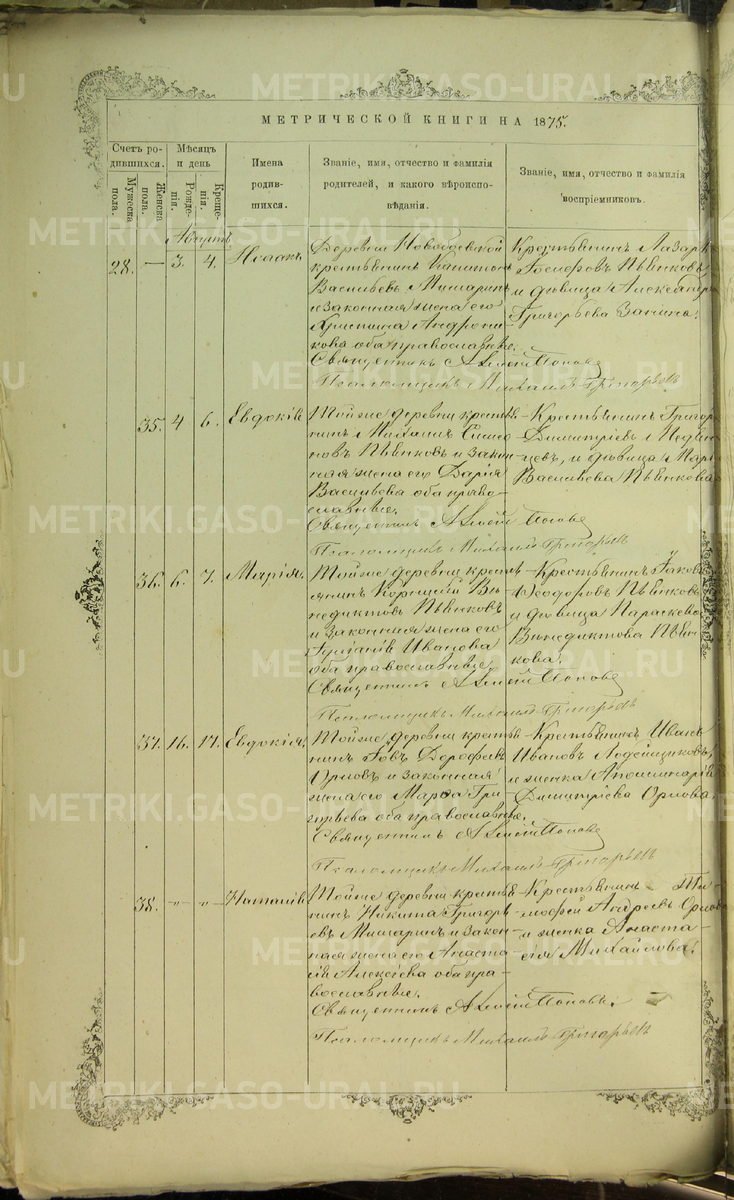 МЕТРИЧЕСКОЙ КНИГИ НА 1875.
Счетъ ро-
дившихся.
Мужеска
пола.
Женска
пола.
Мѣсяцъ
и день
Рожде-
нія.
Креще-
нія.
Имена
родив-
шихся.
Званіе, имя, отчество и фамилія
родителей, и какого вѣроиспо-
вѣданія.
Званіе, имя, отчество и фамилія
воспріемниковъ.
Августъ
28. — 3. 4.
Деревни
крестьянинъ Капитонъ
Васильевъ Мишаринъ
и законная жена его
Христина Андрони-
кова оба православные.
Священникъ Алексій Поповъ
Псаломщикъ Михаилъ Григорьевъ
Крестьянинъ Лазарь
Іосифовъ Пьянковъ,
и дѣвица Александра
Григорьева
35. 4 6. Евдокія
Тойже деревни кресть-
нинъ Михаилъ Симео-
новъ Пьянковъ и закон-
ная жена его Дарія
Васильева оба право-
славные.
Священникъ Алексій Поповъ
Псаломщикъ Михаилъ Григорьевъ
Крестьянинъ Григор
Димитріевъ
и дѣвица Марі
Васильева Пьянкова
36. 6. 7. Марія.
Тойже деревни кресть-
янинъ Корнилій Ве-
недиктовъ Пьянковъ
и законная жена его
Иванова
оба православные.
Священникъ Алексій Поповъ
Псаломщикъ Михаилъ Григорьевъ
Крестьянинъ Яковъ
Ѳеодоровъ Пьянковъ
и дѣвица Параскева
Венедиктова Пьян-
кова.
37. 16. 17. Евдокія.
Тойже деревни кресть-
нинъ Іовъ Дорофеевъ
Орловъ и законная
жена его Марѳа Гри-
горьева оба православные.
Священникъ Алексій Поповъ
Псаломщикъ Михаилъ Григорьевъ
Крестьянинъ Иванъ
Ивановъ
и женка Аполлинарія
Димитріева Орлова.
38. -"- -"- Наталія
Тойже деревни кресть-
нинъ Никита Григорь-
евъ Мишаринъ и закон-
ная жена его Анаста-
сія Алексѣева оба пра-
вославные.
Священникъ Алексій Поповъ.
Псаломщикъ Михаилъ Григорьевъ
Крестьянинъ Ти-
моѳей Андреевъ Орлов
и женка Анаста-
сія Михайлова.
METRIKI.GASO-URAL.RU